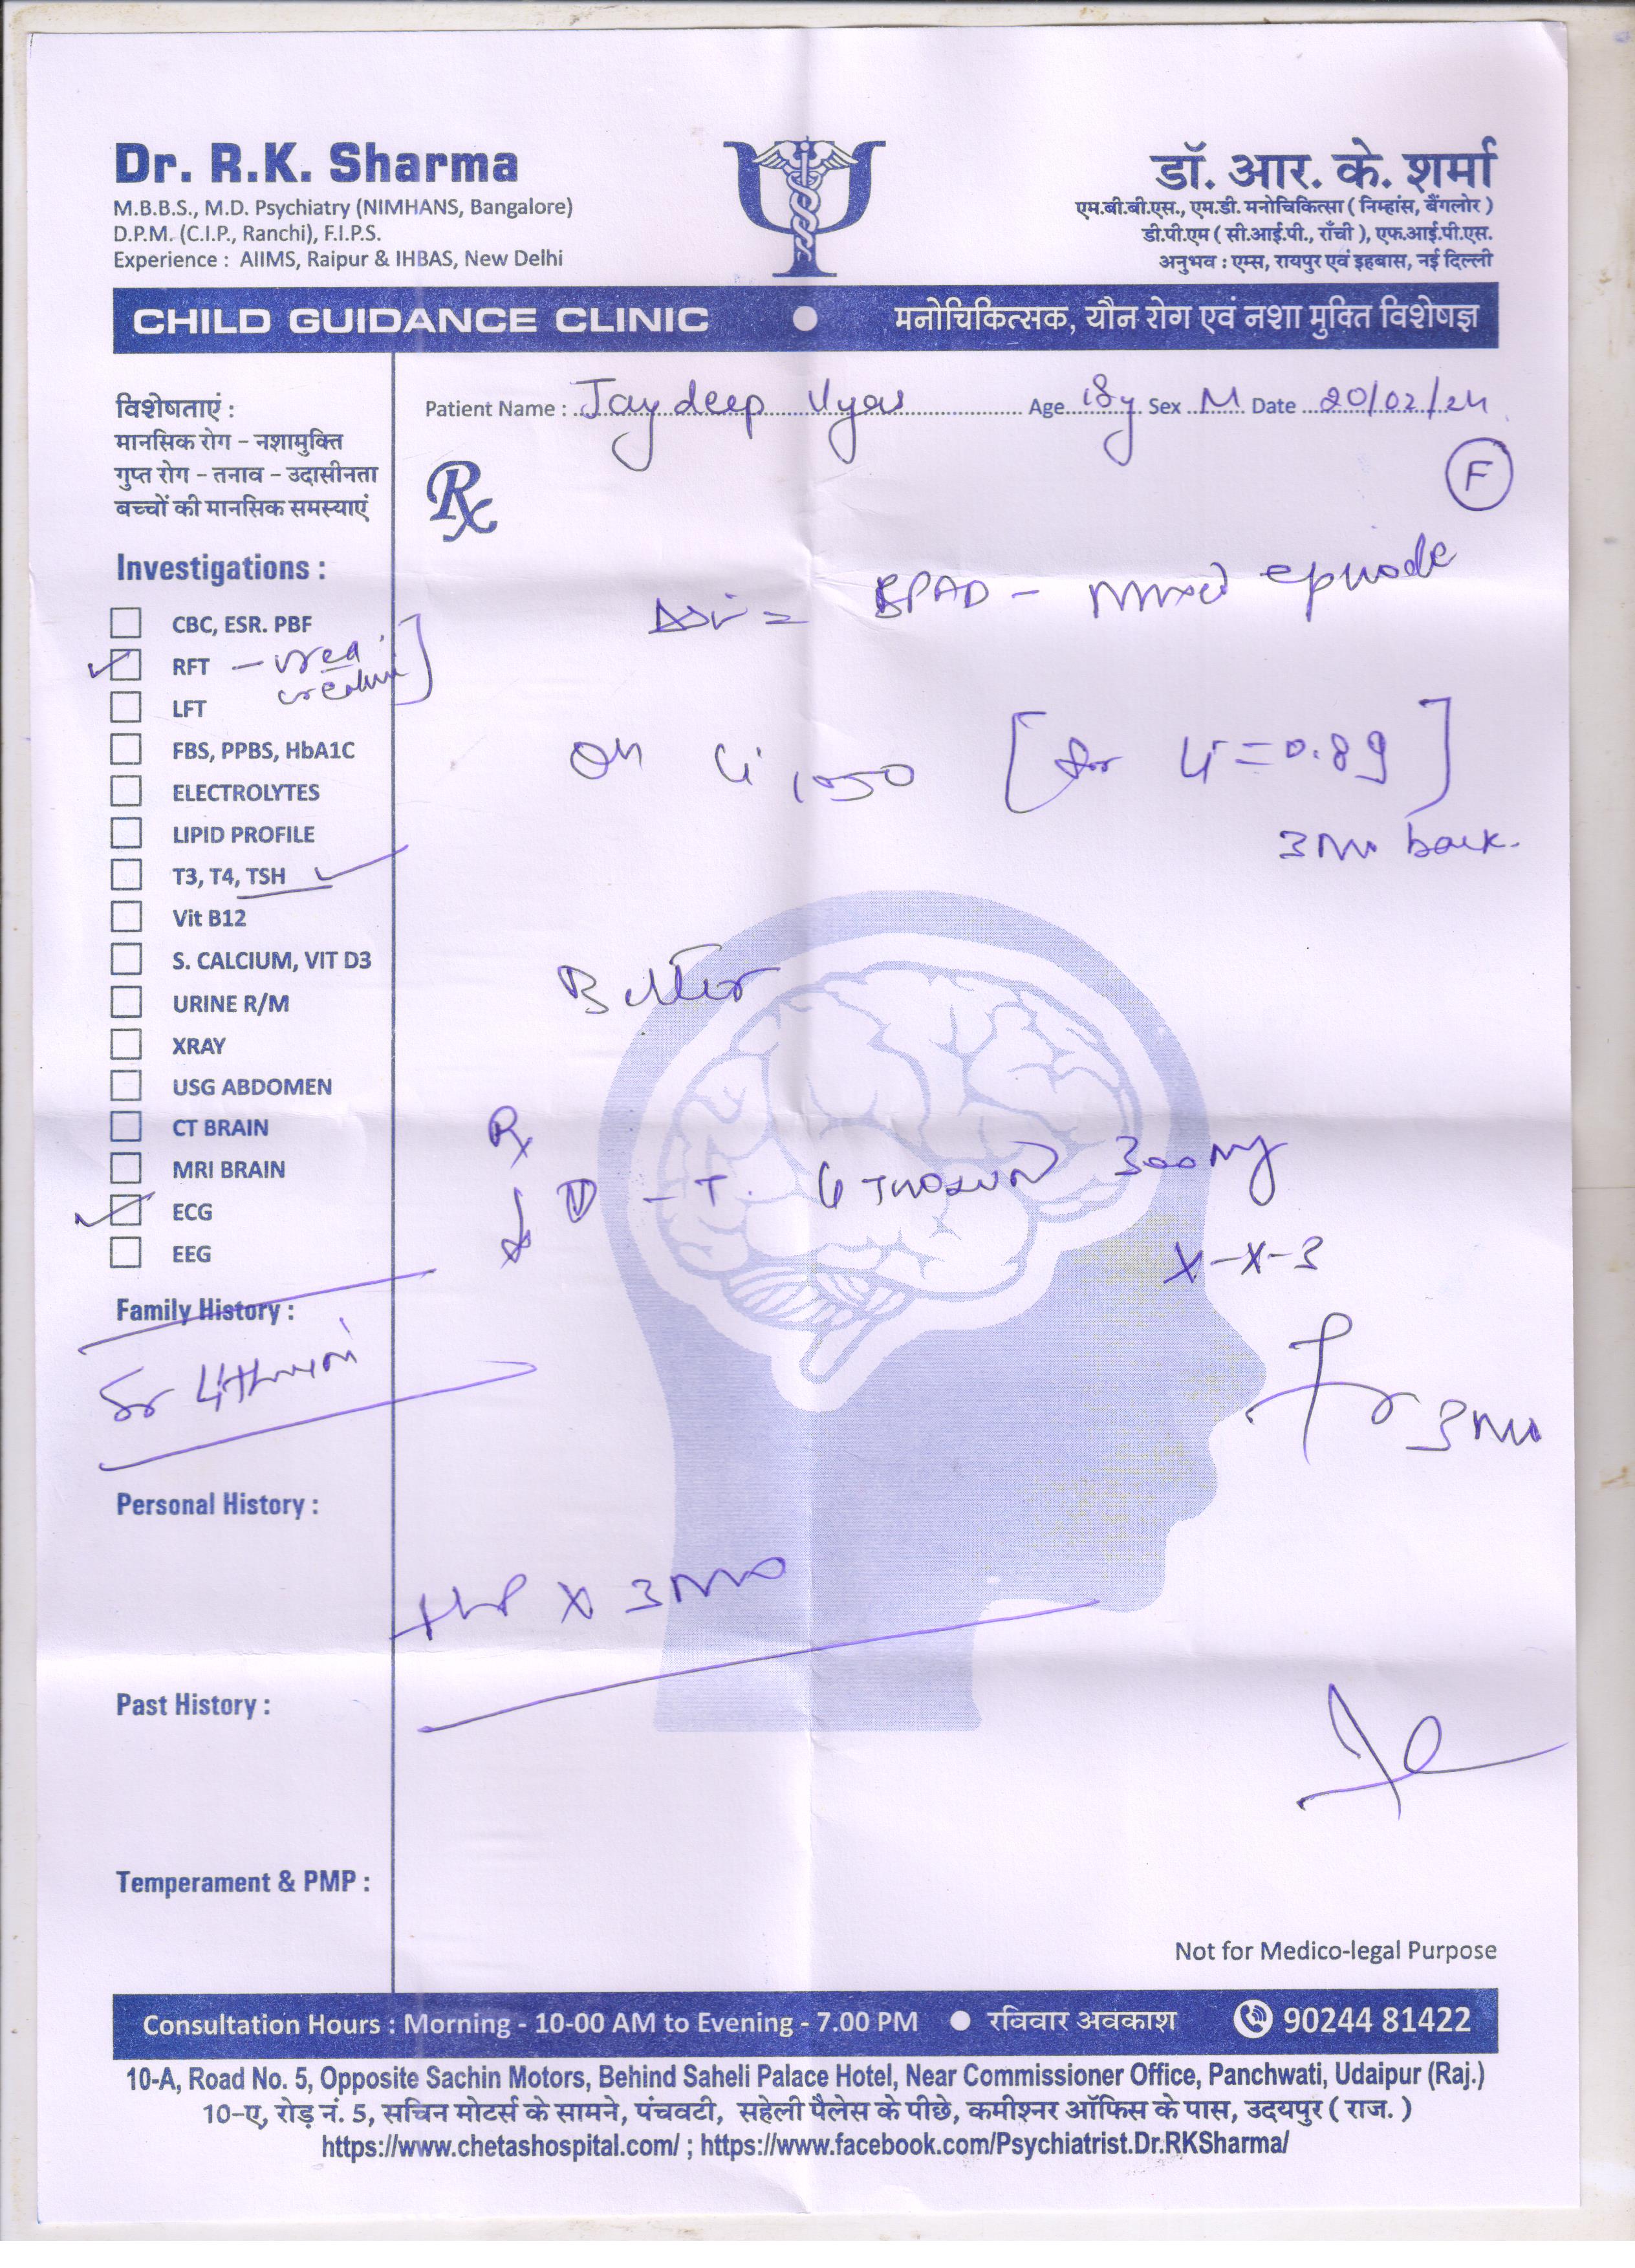 Dr. R.K. Sharma
M.B.B.S., M.D. Psychiatry (NIMHANS, Bangalore)
D.P.M. (C.I.P., Ranchi), F.I.P.S.
Experience : AIIMS, Raipur & IHBAS, New Delhi
डॉ. आर. के. शर्मा
एम.बी.बी.एस., एम.डी. मनोचिकित्सा ( निम्हांस, बैंगलोर )
डी.पी.एम ( सी.आई.पी., राँची ), एफ.आई.पी.एस.
अनुभव : एम्स, रायपुर एवं इहबास, नई दिल्ली
CHILD GUIDANCE CLINIC ● मनोचिकित्सक, यौन रोग एवं नशा मुक्ति विशेषज्ञ
Patient Name : Jaydeep Vyas Age 18y Sex M Date 20/02/24
विशेषताएं :
मानसिक रोग – नशामुक्ति
गुप्त रोग – तनाव – उदासीनता
बच्चों की मानसिक समस्याएं
Rx
F
Investigations :
CBC, ESR. PBF
RFT – urea
creatinine
LFT
FBS, PPBS, HbA1C
ELECTROLYTES
LIPID PROFILE
T3, T4, TSH
Vit B12
S. CALCIUM, VIT D3
URINE R/M
XRAY
USG ABDOMEN
CT BRAIN
MRI BRAIN
ECG
EEG
Family History :
Sr Lithium
Personal History :
Past History :
Temperament & PMP :
BPAD – Mixed episode
on Li 1050 [ Sr Li = 0.89 ]
3 Mo back.
Better
Rx
– T. LITHOSUN 300mg
X-X-3
3 Mo
X 3 Mo
Not for Medico-legal Purpose
Consultation Hours : Morning - 10-00 AM to Evening - 7.00 PM ● रविवार अवकाश 90244 81422
10-A, Road No. 5, Opposite Sachin Motors, Behind Saheli Palace Hotel, Near Commissioner Office, Panchwati, Udaipur (Raj.)
10-ए, रोड़ नं. 5, सचिन मोटर्स के सामने, पंचवटी, सहेली पैलेस के पीछे, कमीश्नर ऑफिस के पास, उदयपुर ( राज. )
https://www.chetashospital.com/ ; https://www.facebook.com/Psychiatrist.Dr.RKSharma/